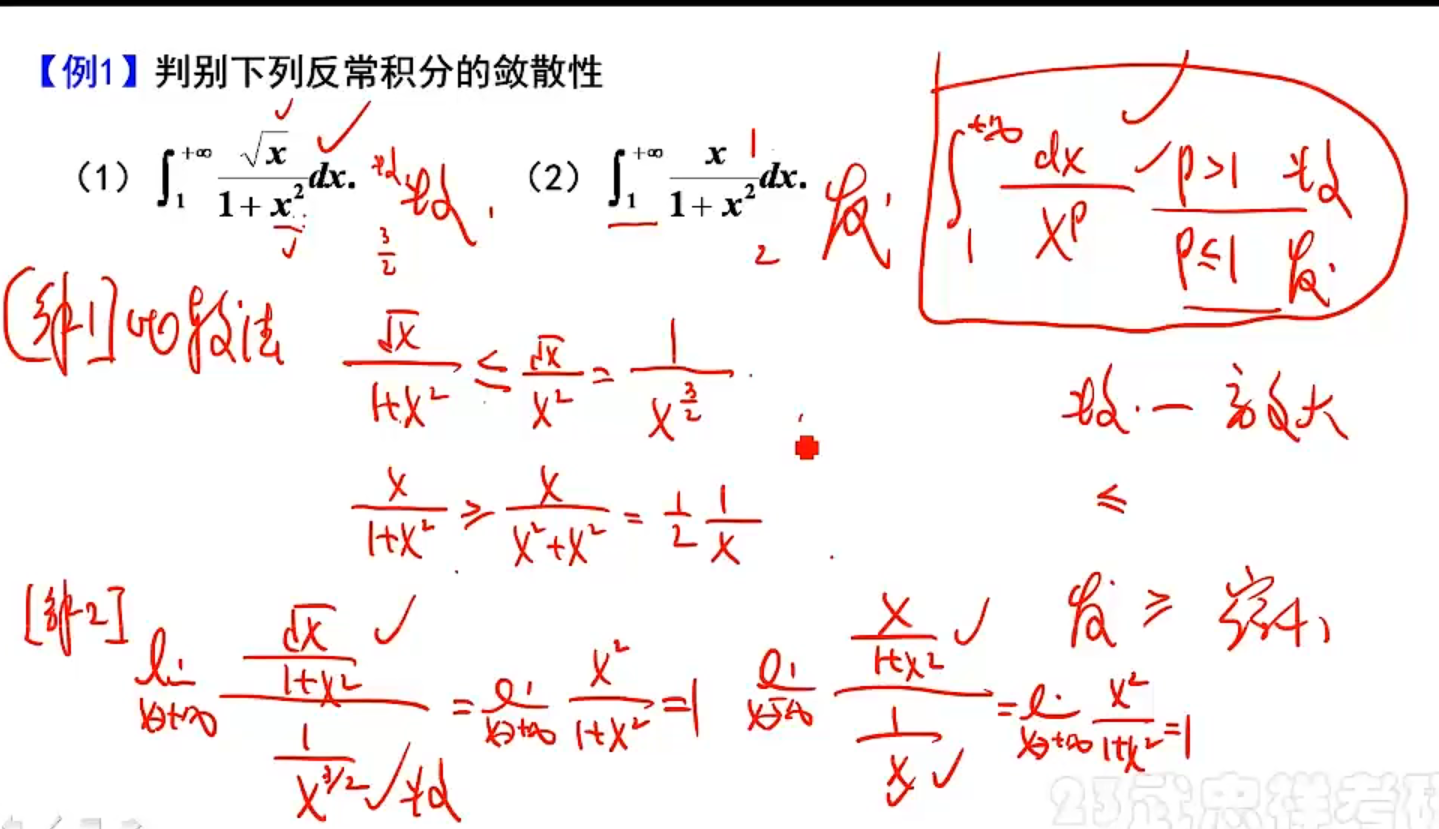 【例1】判别下列反常积分的敛散性
（1）∫₁^{+∞} √x/(1+x²) dx. 收 收 （2）∫₁^{+∞} x/(1+x²) dx. 发
3/2 1 2
∫₁^{+∞} dx/x^p p>1 收
p≤1 发
[解1] 比较法 √x/(1+x²) ≤ √x/x² = 1/x^{3/2}
收 — 放大
≤
x/(1+x²) ≥ x/(x²+x²) = 1/2 1/x
发 ≥ 缩小
[解2] lim_{x→+∞} (√x/(1+x²))/(1/x^{3/2}) = lim_{x→+∞} x²/(1+x²) = 1
收
lim_{x→+∞} (x/(1+x²))/(1/x) = lim_{x→+∞} x²/(1+x²) = 1
23武忠祥考研